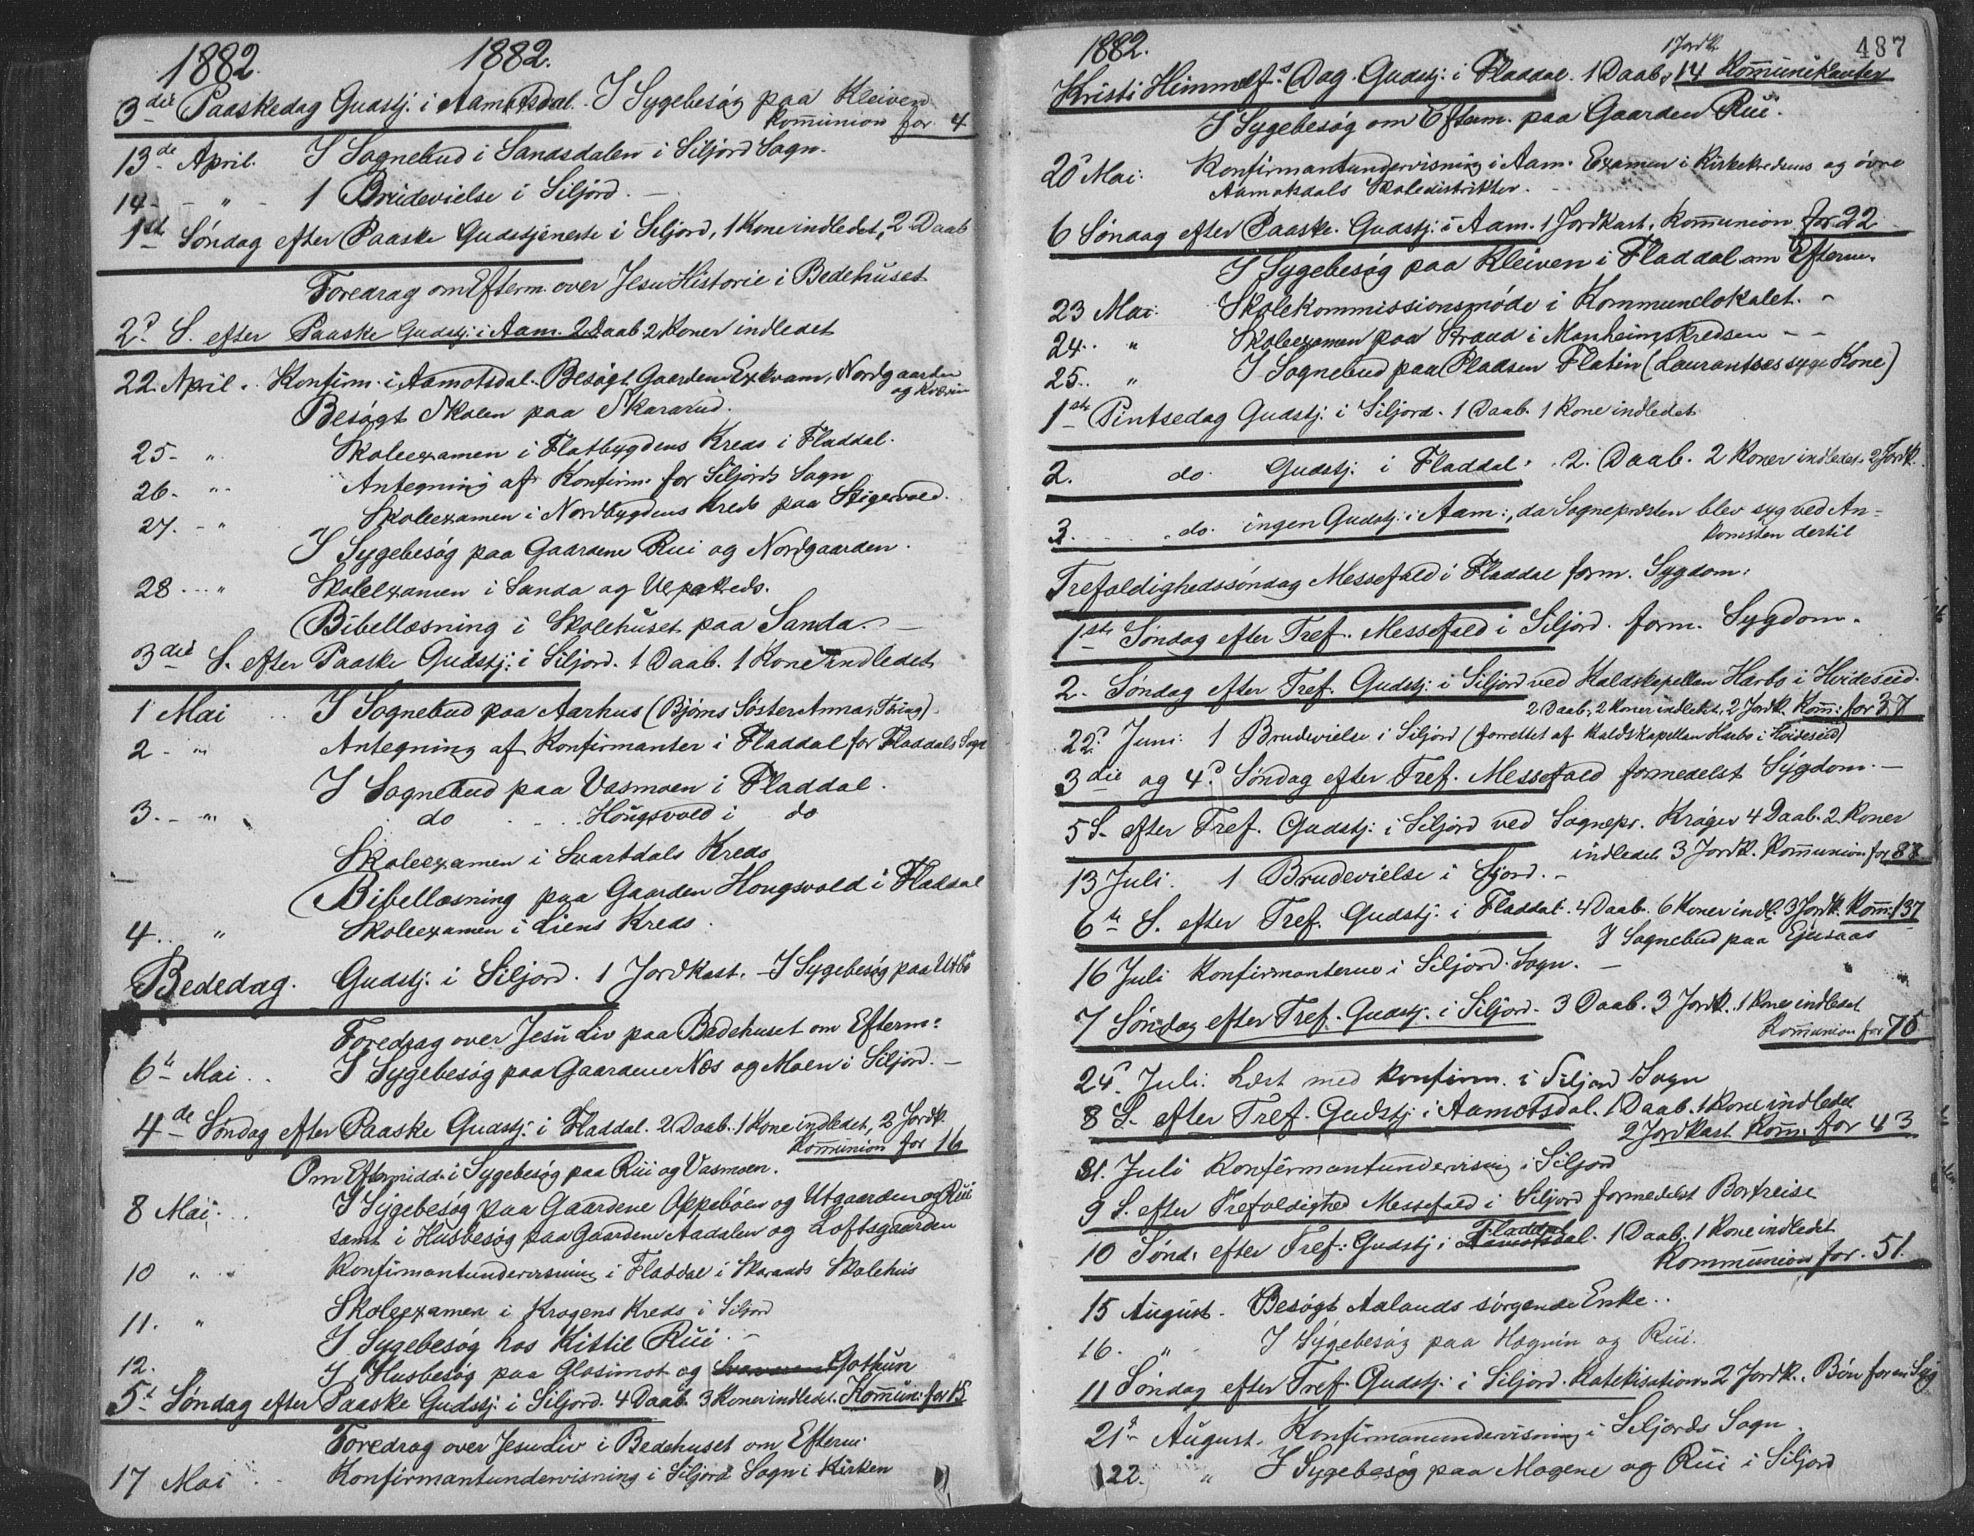 1882. 1882.
3die Paaskedag Gudstj. i Aamotsdal. I Sygebesög paa Kleiven
Kom̄union for 4
13de April. I Sognebud i Sandsdalen i Siljord Sogn.
14 - " - 1 Brudevielse i Siljord. -
1ste Søndag efter Paaske Gudstjeneste i Siljord, 1 Kone indledet, 2 Daab
Foredrag om Efterm. over Jesu Historie i Bedehuset
2d S. efter Paaske Gudstj: i Aam. 2 Daab 2 Koner indledet
22. April. Konfirm. i Aamotsdal. Besögt Gaarden Exkvam, Nordgaarden
og
Besøgt Skolen paa Skararud.
25 - " Skoleexamen i Flatbygdens Kreds i Fladdal.
26. " Antegning af Konfirm. for Siljords Sogn
27. - " Skoleexamen i Nordbygdens Kreds paa Stigervold.
I Sygebesøg paa Gaardene Rui og Nordgaarden.
28 - " Skoleexamen i Sanda og Kreds.
Bibellæsning i Skolehuset paa Sanda. -
3die S. efter Paaske Gudstj: i Siljord. 1 Daab. 1 Kone indledet
1 Mai .. I Sognebud paa Aarhus (Bjørns Søster Anna Thing)
2 - " Antegning af Konfirmanter i Fladdal for Fladdals Sogn
I Sognebud paa Vasmoen i Fladdal.
3. - " do Hougsvold i do
Skoleexamen i Svartdals Kreds
Bibellæsning paa Gaarden Hougsvold i Fladdal
4 .. " Skoleexamen i Liens Kreds.
Bededag. Gudstj. i Siljord. 1 Jordkast. - I Sygebesøg paa Utbö
Foredrag over Jesu Liv paa Bedehuset om Efterm:
6te Mai .. I Sygebesøg paa Gaardene Næs og Moen i Siljord. -
4de Søndag efter Paaske Gudstj: i Fladdal. 2 Daab. 1 Kone indledet, 2 Jordk.
Kom̄union for 16
Om Eftermidd. i Sygebesøg paa Rui og Vasmoen.
8 Mai. .. I Sygebesøg paa Gaardene Oppebøen og Utgaarden og Rui
samt i Husbesøg paa Gaardene Aadalen og Loftsgaarden
10 " Konfirmantundervisning i Fladdal i Skarauds Skolehus
11. " Skoleexamen i Krogens Kreds i Siljord
I Sygebesøg hos Kittil Rui. -
12. " I Husbesøg paa Glosimot og Gothun
5t Søndag efter Paaske Gudstj: i Siljord. 4 Daab. 3 Koner indledet. Kom̄un: for 15
Foredrag over Jesu Liv i Bedehuset om Efterm.
17 Mai .. Konfirmantundervisning i Siljord Sogn i Kirken
487
1882.
1 Jordk.
Kristi Himmelf.s Dag. Gudstj: i Fladdal. 1 Daab, 14 Kom̄unikanter
I Sygebesøg om Efterm. paa Gaarden Rui.
20d Mai. Konfirmantundervisning i Aam. Examen i Kirkekredsens og øvre
Aamotsdals Skoledistrikter.
6 Søndag efter Paaske. Gudstj: i Aam. 1 Jordkast. Kom̄union for 22
I Sygebesøg paa Kleiven i Fladdal om Efterm.
23 Mai. Skolekommissionsmøde i Kommunelokalet. -
24. " Skoleexamen paa Straud i Manheimskredsen - -
25. " I Sognebud paa Pladsen Flatin (Laurantses syge Kone)
1ste Pintsedag Gudstj: i Siljord. 1 Daab. 1 Kone indledet
2. do. Gudstj. i Fladdal. 2. Daab. 2 Koner indledet. 2 Jordk.
3. do. ingen Gudstj: i Aam:, da Sognepræsten blev syg ved An-
komsten dertil
Trefoldighedssøndag Messefald i Fladdal form. Sygdom:
1ste Søndag efter Tref. Messefald i Siljord. form. Sygdom.
2. Søndag efter Tref. Gudstj: i Siljord ved Kaldskapellan Harbo i Hvideseid.
2 Daab, 2 Koner indledet, 2 Jordk. Kom̄: for 37
22d Juni: 1 Brudevielse i Siljord (forrettet af Kaldskapellan Harbo i Hvideseid)
3die og 4d Søndag efter Tref. Messefald formedelst Sygdom. -
5 S. efter Tref. Gudstj: i Siljord ved Sognepr. Krøger 4 Daab. 2 Koner
indledet 3 Jordk. Kom̄union for 88
13 Juli. 1 Brudevielse i Sjord. -
6te S. efter Tref. Gudstj. i Fladdal. 4 Daab. 6 Koner indl. 3 Jordk. Kom̄: 137
I Sognebud paa
16 Juli Konfirmanterne i Siljord Sogn. -
7 Søndag efter Tref. Gudstj. i Siljord. 3 Daab. 3 Jordk. 1 Kone indledet
Kom̄union for 75
24d Juli: Læst med Konfirm. i Siljord Sogn
8 S. efter Tref. Gudstj i Aamotsdal. 1 Daab. 1 Kone indledet
2 Jordkast Kom̄: for 43
31. Juli Konfirmantundervisning i Siljord
9 S. efter Trefoldighed Messefald i Siljord formedelst Bortreise
Fladdal
10 Sønd. efter Tref: Gudstj i Aamotsdal. 1 Daab. 1 Kone indledet
Kommunion for. 51.
15 August. Besögt Aalands sörgende Enke. .
16. " I Sygebesøg paa Hogvin og Rui.
11 Søndag efter Tref. Gudstj: i Siljord. Katekisation. 2 Jordk. Bön for en Syg
21d August. Konfirmanundervisning i Siljords Sogn
22. " I Sygebesøg paa Mogene og Rui i Siljord